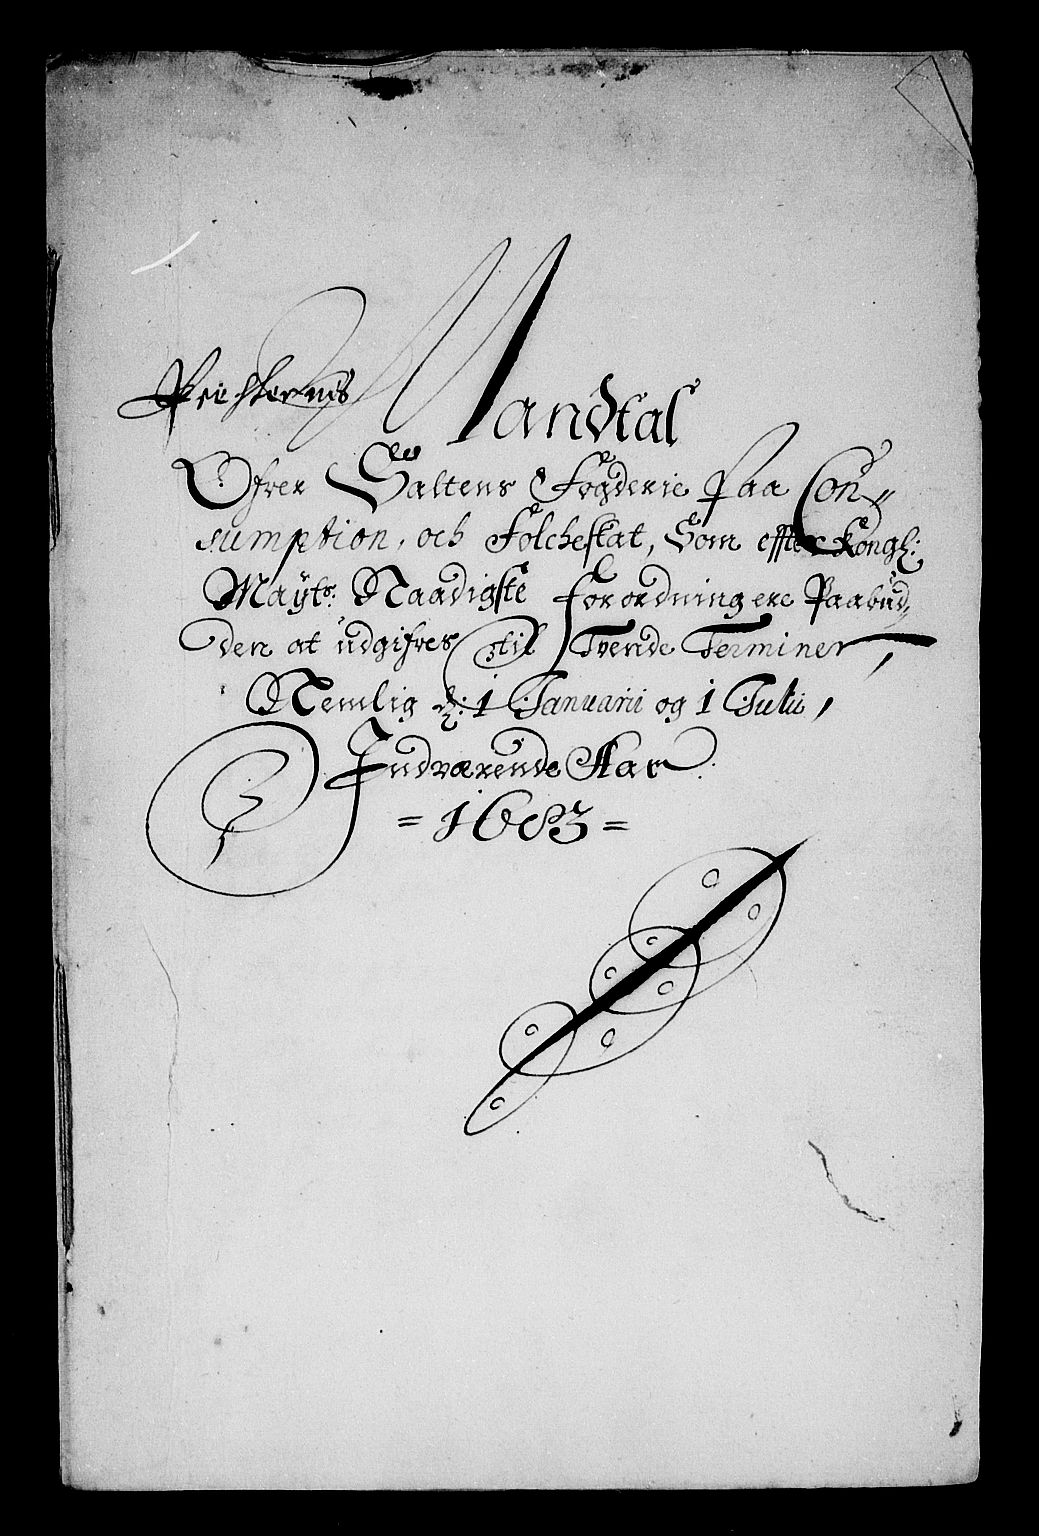 Presternis Mandtal
Ofver Saltens Fogderie Paa Con=
sumption, och Folcheskat, Som effter Kongl:
Mayts: Naadigste Forordningere Paabud,
den at udgifves til Tvende Terminer,
Nemlig d: 1 Januarii og 1 Julii,
Indværende Aar
= 1683 =